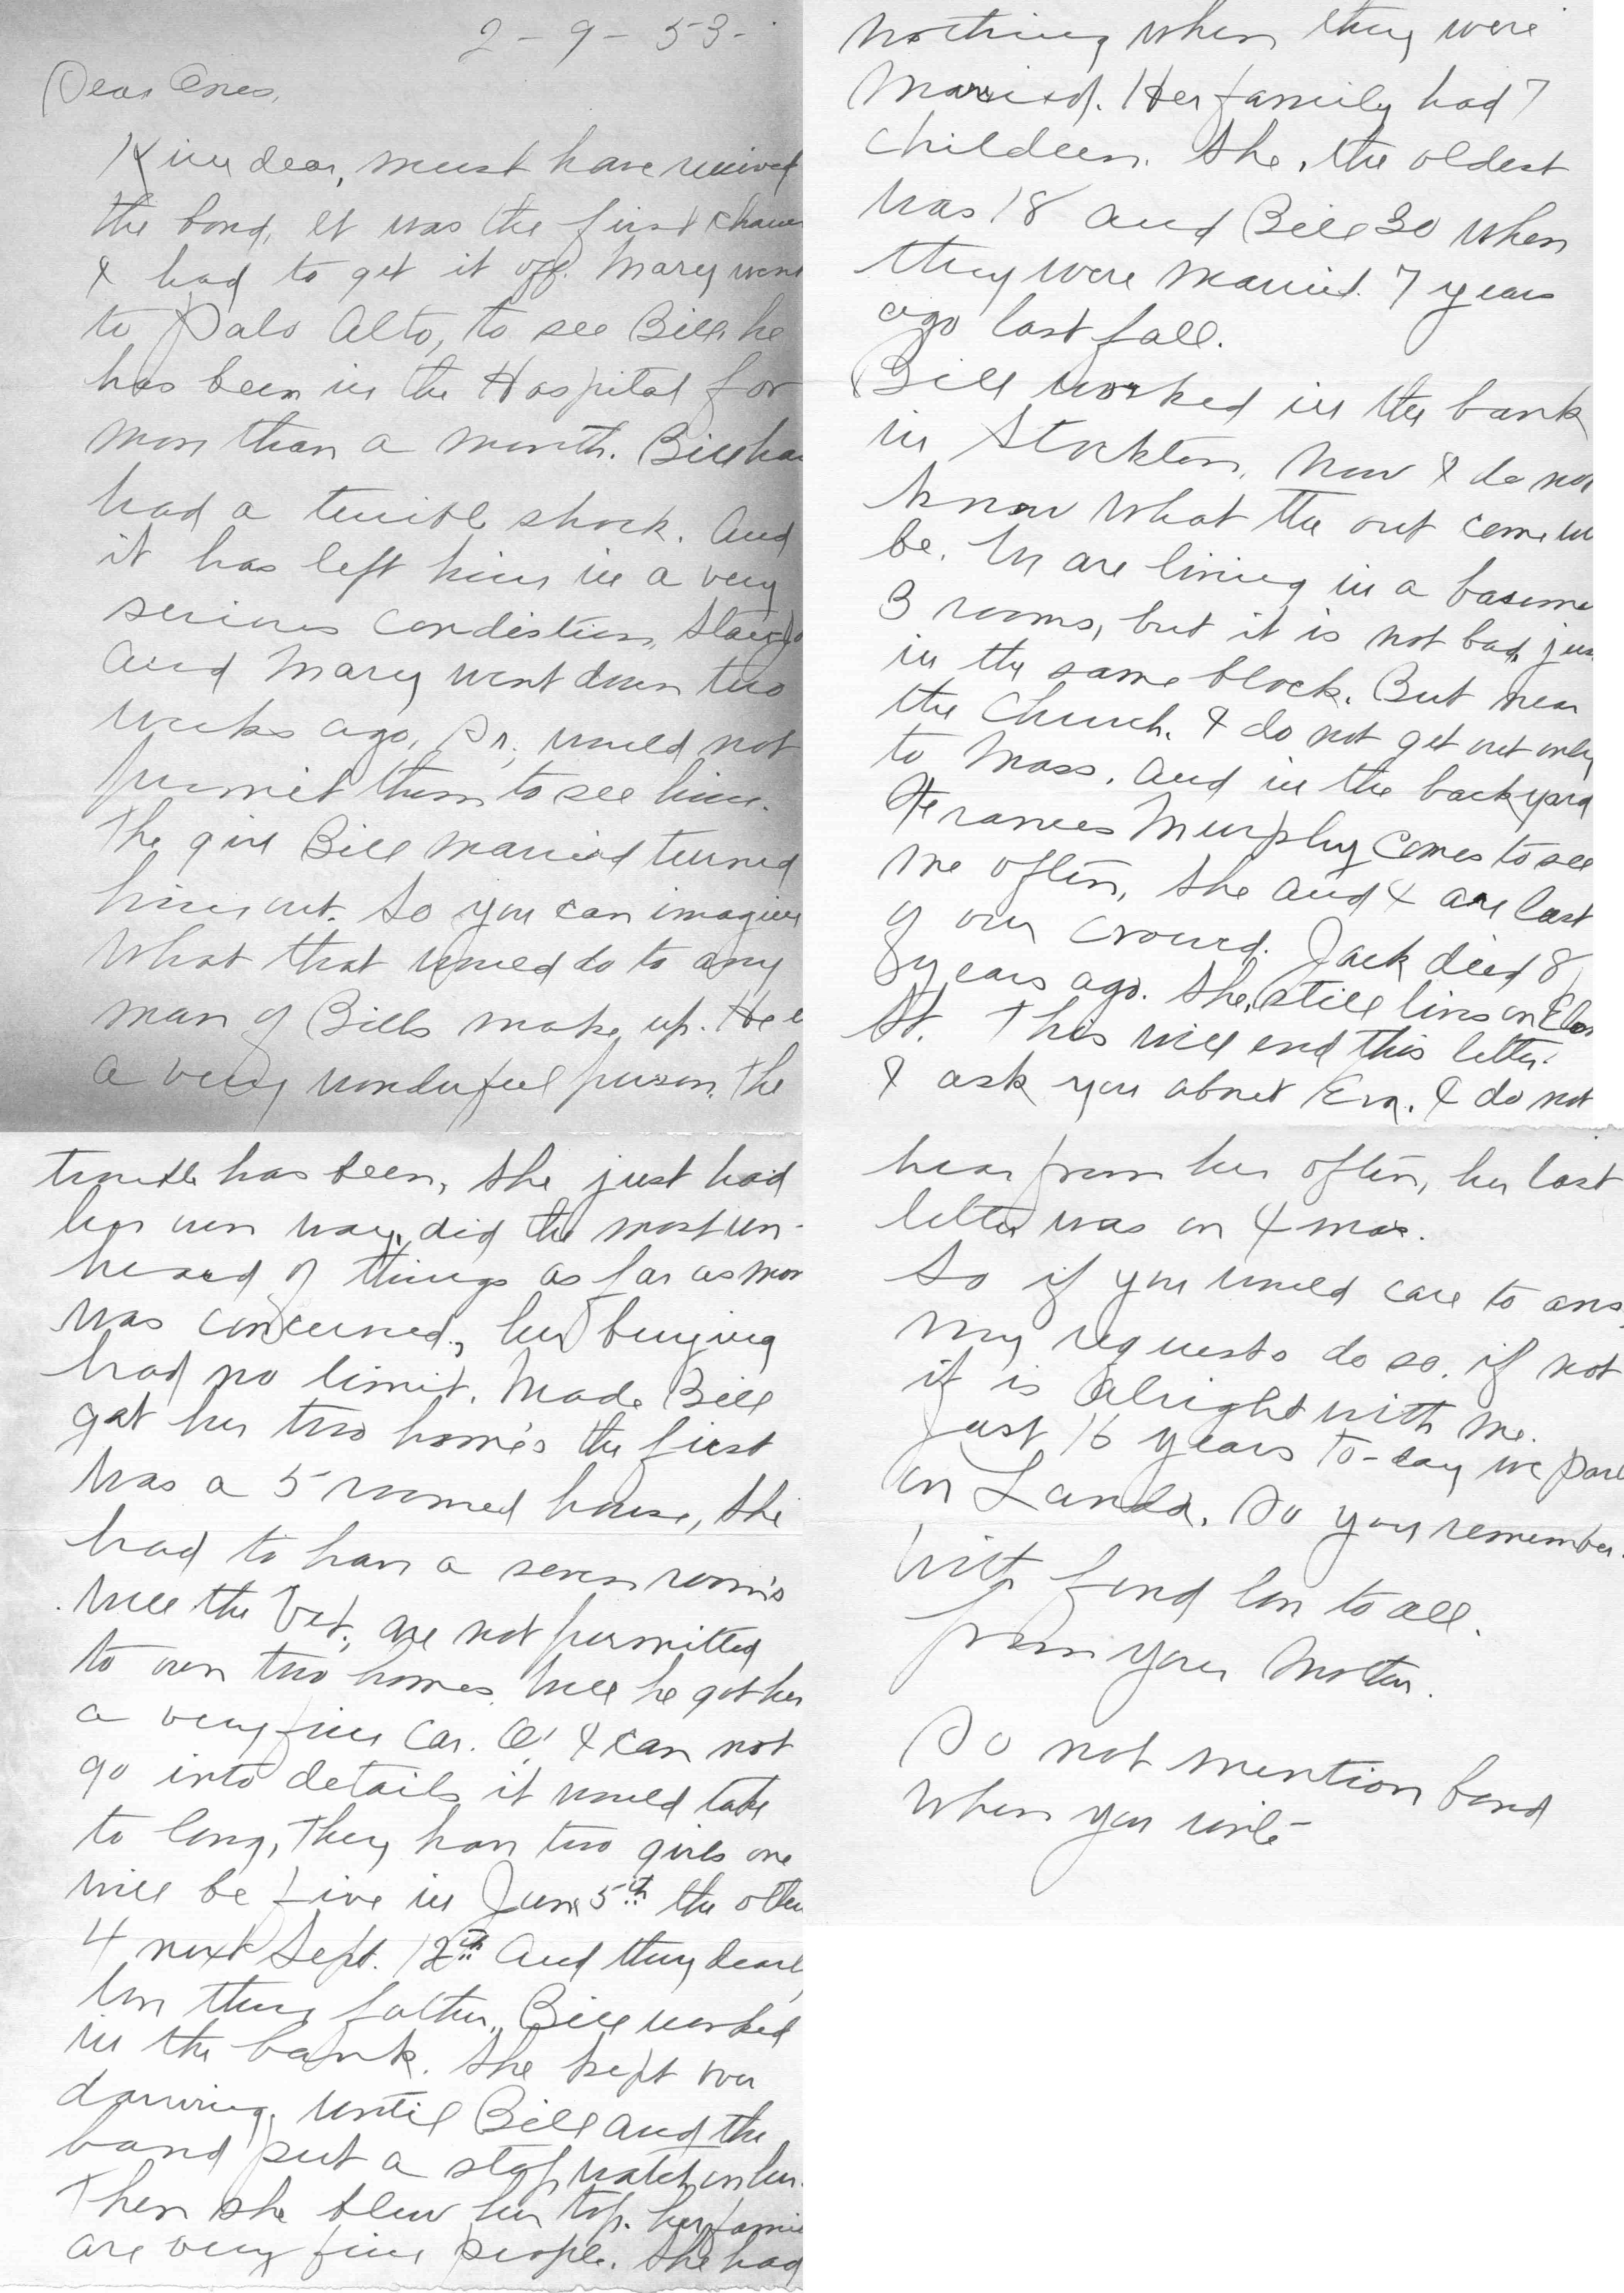 2-9-53-
Dear Ones,
dear, must have received
the bond, It was the first chance
I had to get it off. Mary went
to Palo Alto, to see Bill, he
has been in the Hospital for
more than a month. Bill has
had a terrible shock. And
it has left him in a very
serious condistion,
And Mary went down two
weeks ago, Dr, would not
permit them to see him.
The girl Bill married turned
him out. So you can imagine
what that would do to any
man of Bills make up. He
a very wonderful person, the
trouble has been, She just had
her own way, did the most un-
heard of things as far as
was concerned, her buying
had no limit. Made Bill
get her two home's the first
was a 5 roomed house, She
had to have a seven room's
well the Vet, are not permitted
to own two homes. Well he got her
a very fine Car. O! I can not
go into details it would take
to long, They have two girls one
will be five in June 5th the other
4 next Sept. 12th And they
love their father. Bill worked
in the bank. She kept over
drawing, until Bill and the
band put a stop watch on her.
Then she blew her top. her
are very fine people. She had
nothing when they were
married. Her family had 7
children. She, the oldest
was 18 and Bill 30 when
they were married. 7 years
ago last fall.
Bill worked in the bank
in Stockton. Now I do not
know what the out come
be. We are living in a
3 rooms, but it is not bad,
in the same block. But near
the Church. I do not get out only
to Mass. And in the backyard
Frances Murphy comes to see
me often, She and I are last
of our crowd. Jack died 8
years ago. She, still lives on
St. This will end this letter.
I ask you about Eva. I do not
hear from her often, her last
letter was on 4 mos.
So if you would care to ans
my requests do so. if not
it is Alright with me.
Just 16 years to-day we
on Landa. Do you remember.
With fond love to all.
from your Mother.
Do not mention bond
when you write